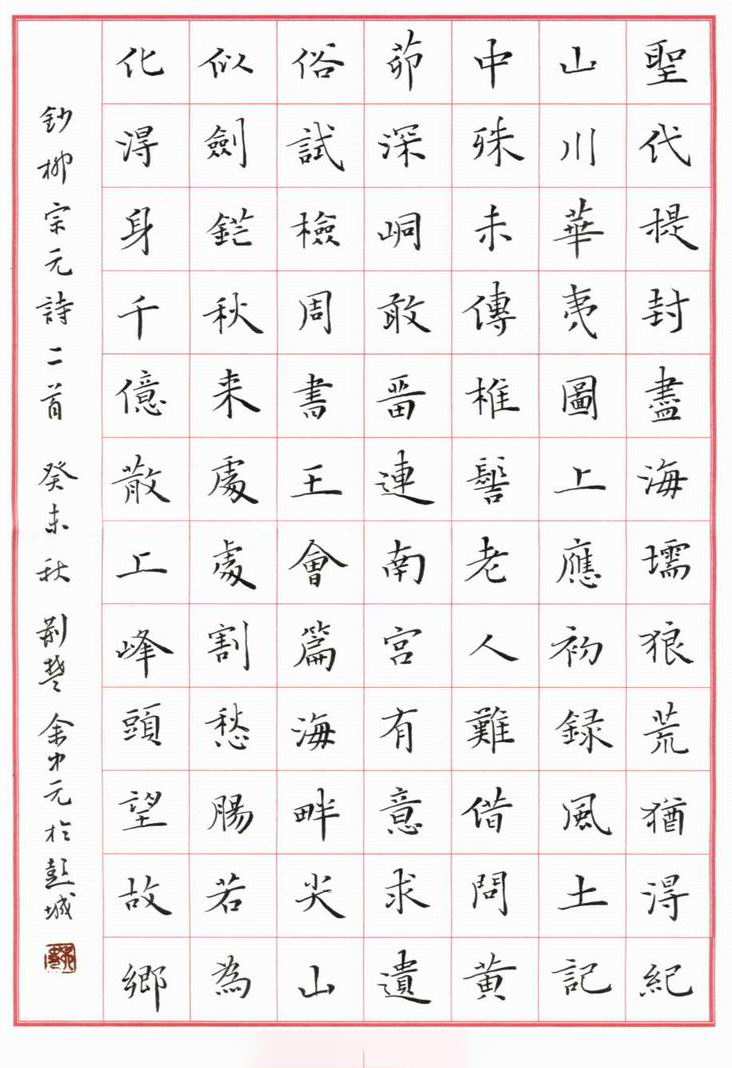 聖代提封盡海壖狼荒猶得紀
山川華夷圖上應初録風土記
中殊未傳椎髻老人難借問黄
茆深峒敢畱連南宮有意求遺
俗試檢周書王會篇海畔尖山
似劍鋩秋来處處割愁腸若為
化得身千億散上峰頭望故鄉
鈔柳宗元詩二首 癸未秋 荆楚 余中元於彭城